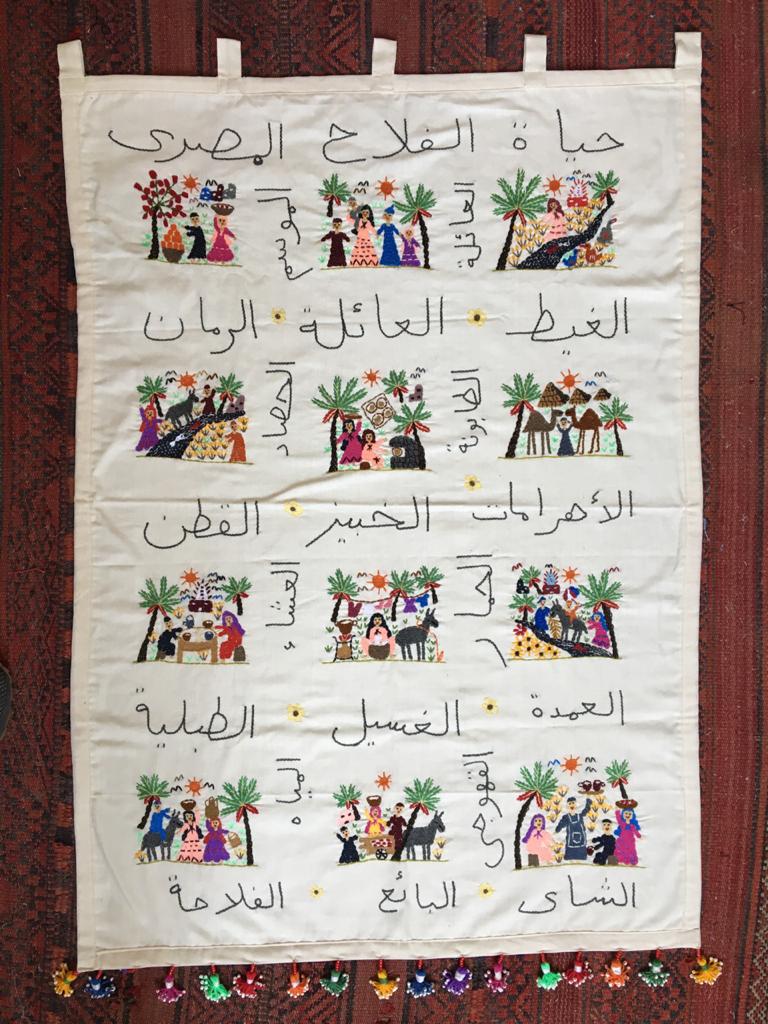 حياة الفلاح المصرى
العائلة
الموسم
الغيط
العائلة
الرمان
الطابونة
الحصاد
الأهرامات
الخبيز
القطن
الحمار
العشاء
العمدة
الغسيل
الطبلية
القهوجى
المياه
الشاى
البائع
الفلاحة